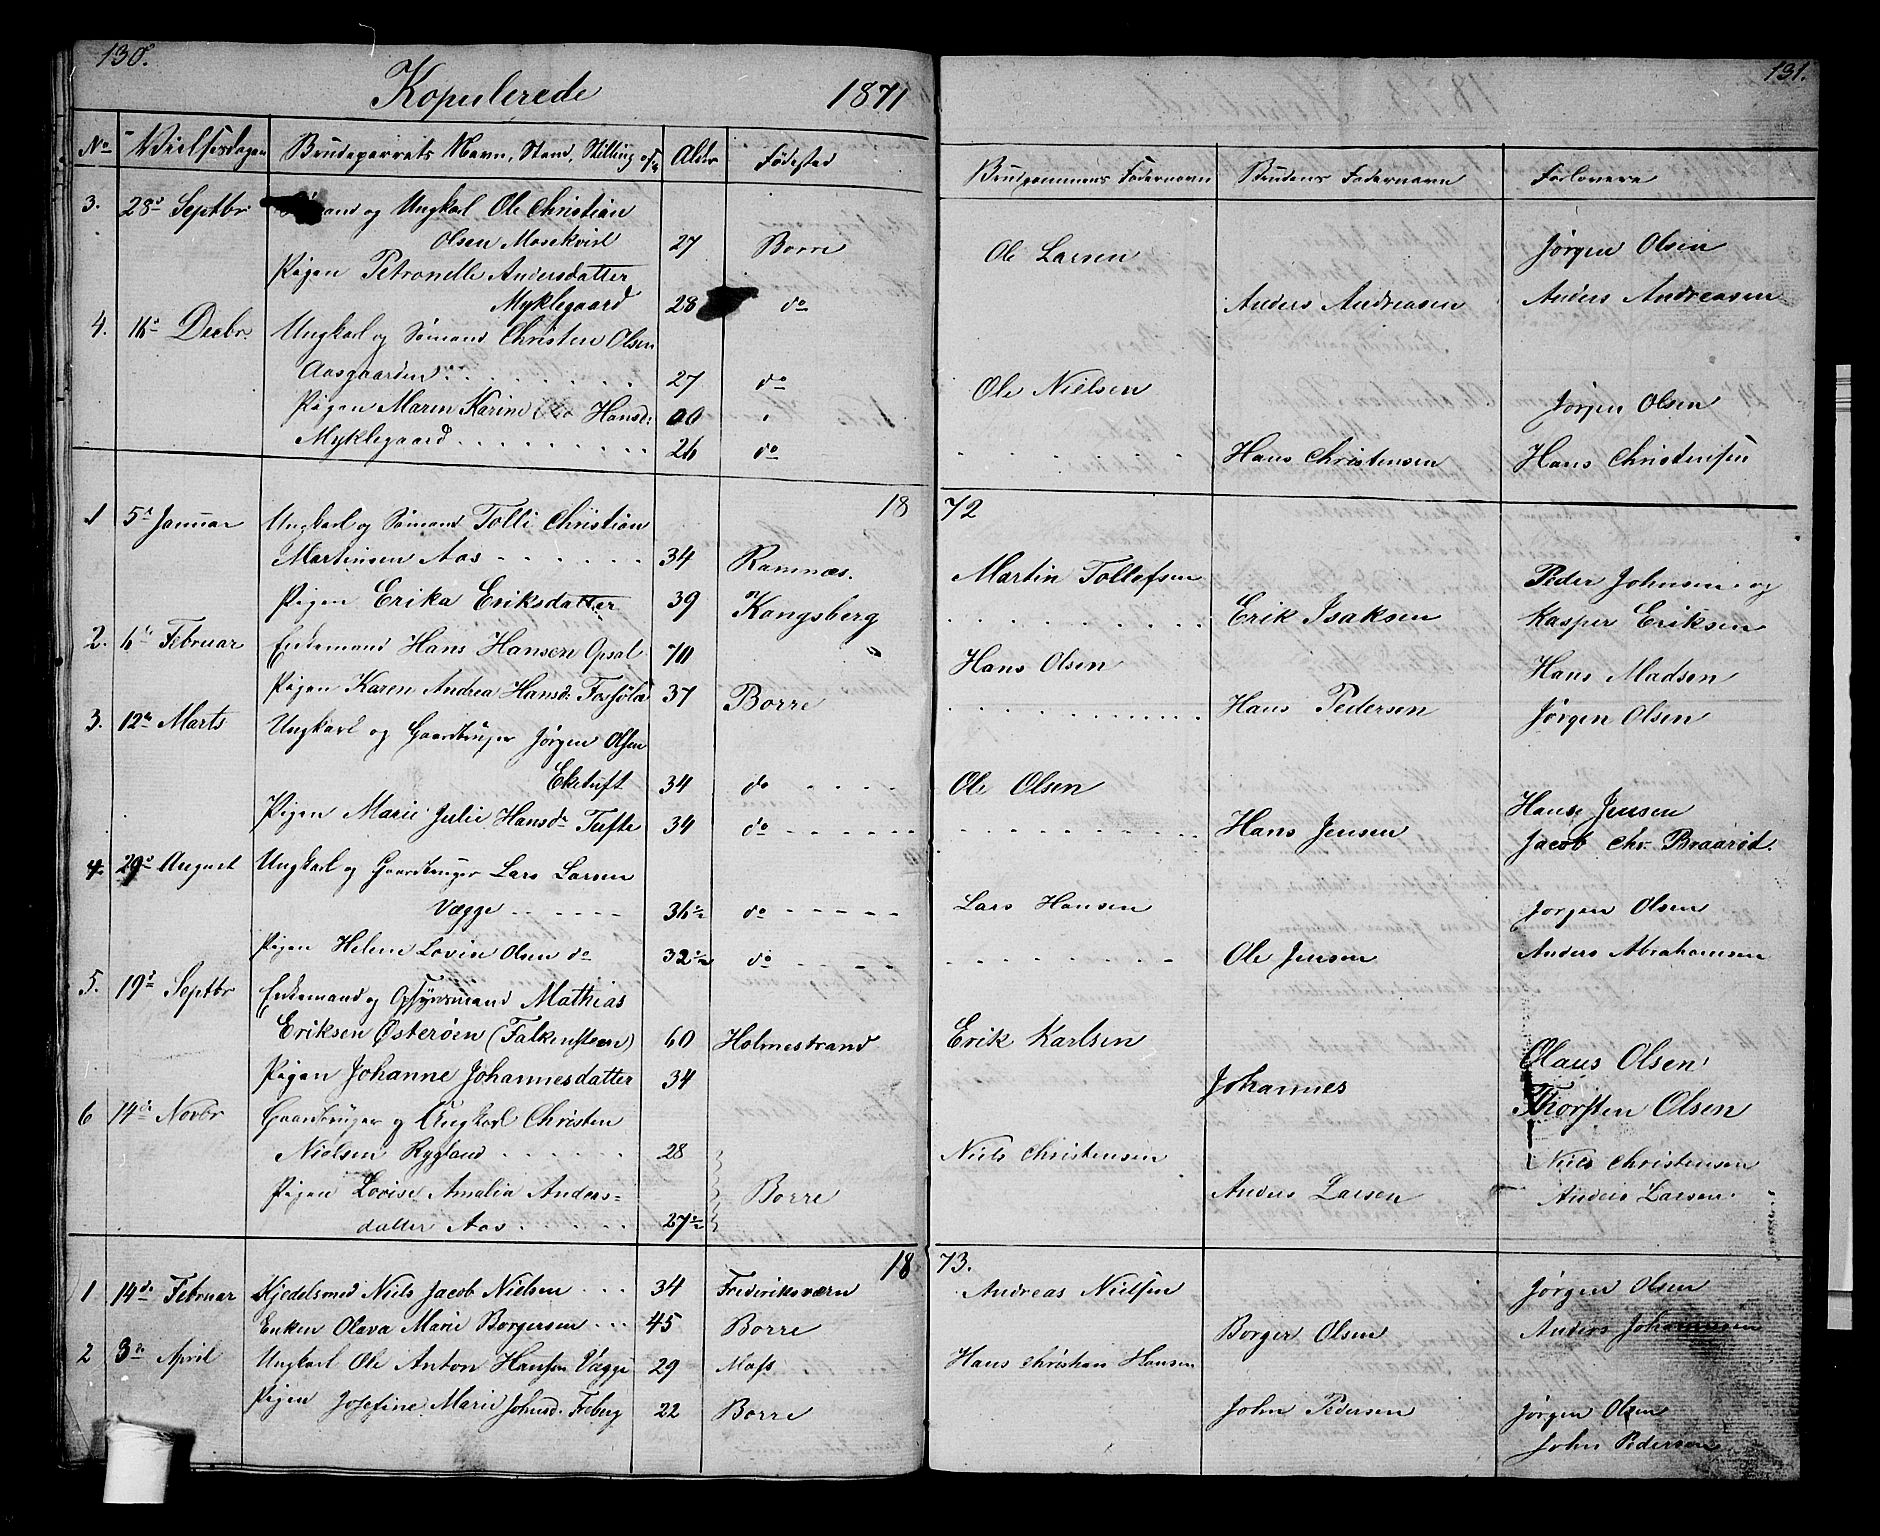 130.
Kopulerede 1871
No Vielsesdagen Brudeparrets Navn, Stand, Stilling Alder Fødested
3. 28de Septbr og Ungkarl Ole Christian
Olsen Mosekvist 27 Borre
Pigen Petronelle Andersdatter
Myklegaard 28 do
4. 16de Decbr. Ungkarl og Sømand Christen Olsen
Aasgaarden 27 do
Pigen Maren Karine Hansd:
Myklegaard 26 do
1872
1 5te Januar Ungkarl og Sømand Tolli Christian
Martinsen Aas 34 Ramnæs.
Pigen Erika Eriksdatter 39 Kongsberg
2. 6te Februar Enkemand Hans Hansen Opsal 70
Pigen Karen Andrea Hansd: 37 Borre
3. 12te Marts Ungkarl og Gaardbruger Jørgen Olsen
Eketuft 34 do
Pigen Marie Julie Hansdr Tufte 34 do
4. 29de August Ungkarl og Gaardbruger Lars Larsen
Vægge 36½ do
Pigen Helene Lovise Olsen do 32½ do
5. 19de Septbr Enkemand og Opsynsmand Mathias
Eriksen Østerøen (Falkensteen) 60 Holmestrand
Pigen Johanne Johannesdatter 34
6 14de Novbr Gaardbruger og Ungkarl Christen
Nielsen Rygland 28
Pigen Lovise Amalia Anders=
datter Aas 27½ Borre
1873.
1 14de Februar Kjedelsmed Niels Jacob Nielsen 34 Frederiksværn
Enken Olava Marie Borgersen 45 Borre
2 3de April Ungkarl Ole Anton Hansen Vægge 29 Moss
Pigen Josefine Marie Johnsd. Freberg 22 Borre
131.
Brudgommens Fadernavn Brudens Fadernavn Forlovere
Ole Larsen Jørgen Olsen
Anders Andreasen Anders Andreasen
Ole Nielsen Jørgen Olsen
Hans Christensen Hans Christensen
Martin Tollefsen Peder Johnsen og
Erik Isaksen Kasper Eriksen
Hans Olsen Hans Madsen
Hans Pedersen Jørgen Olsen
Ole Olsen Hans Jensen
Hans Jensen Jacob Chr. Braarød.
Lars Hansen Jørgen Olsen
Ole Jensen Anders Abrahamsen
Erik Karlsen Olaus Olsen
Johannes Thorsten Olsen
Niels Christensen Niels Christensen
Anders Larsen Anders Larsen
Andreas Nielsen Jørgen Olsen
Borger Olsen Anders Johannesen
Hans Christian Hansen
John Pedersen Jørgen Olsen
John Pedersen